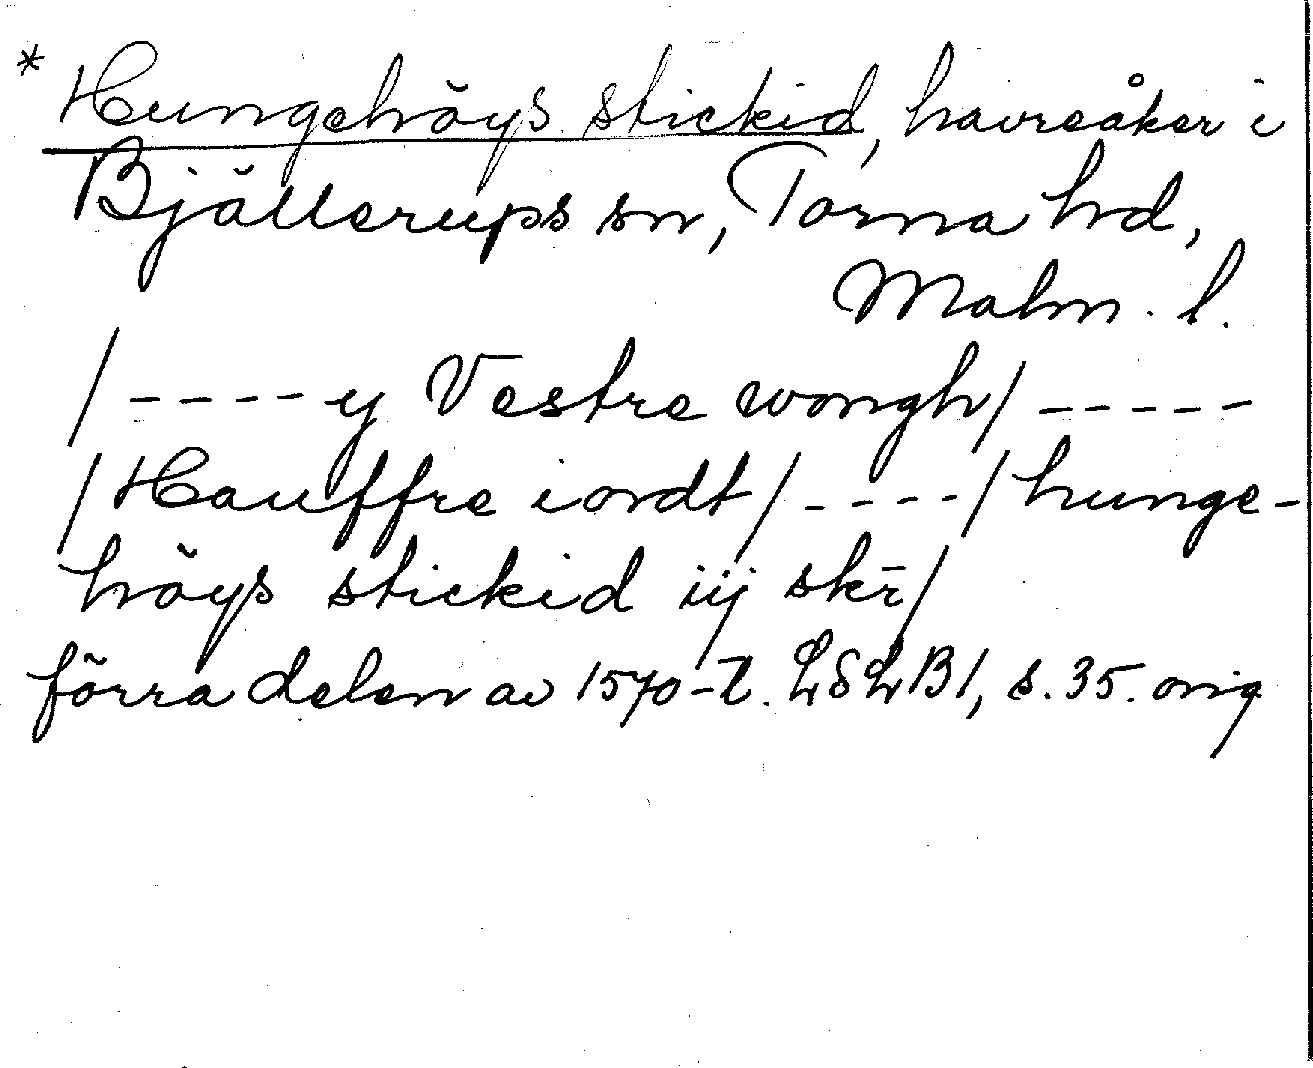 * Hungehöys stickid, havreåker i
Bjällerups sn, Torna hd,
Malm. l.
/ - - - - y Vestre wongh/ - - - - -
/Hauffre iordt/ - - - -/hunge-
höys stickid iij skr̄/
förra delen av 1570-t. LSLB1, s. 35. orig